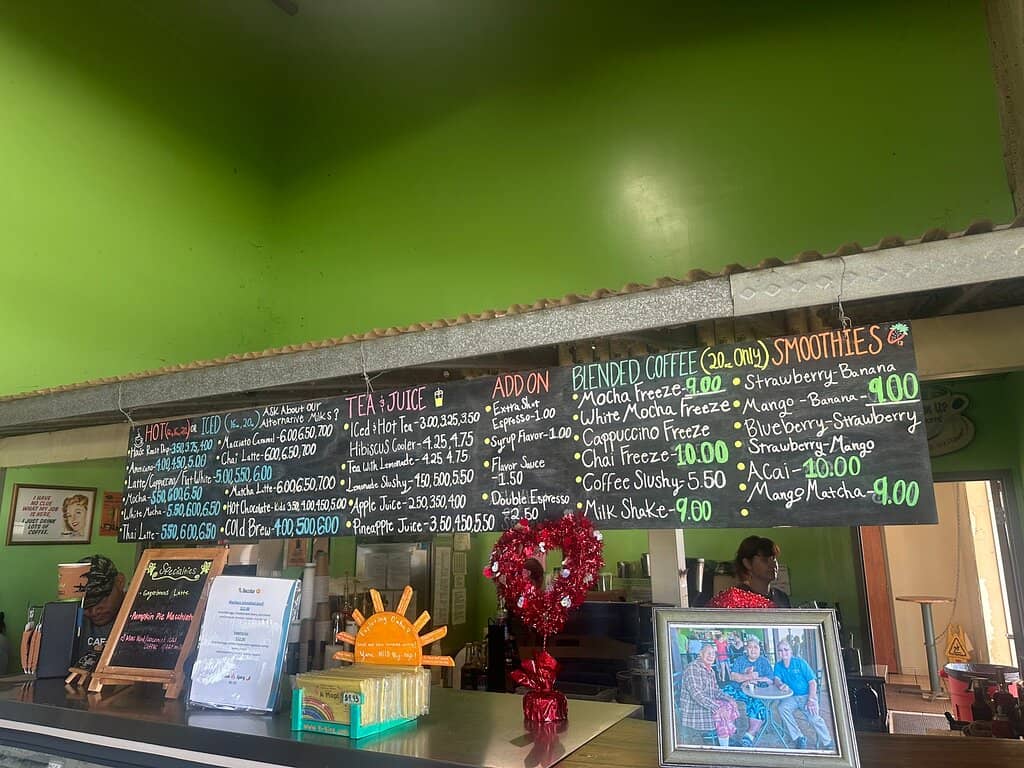 HOT (12, 16, 20) or ICED (16, 20)
ASK ABOUT OUR
Alternative Milks?
House Roast Drip-3.50,3.75,4.00
Americano-4.00,4.50,5.00
Latte/Cappuccino/Flat White-5.00,5.50,6.00
Mocha-5.50,6.00,6.50
White Mocha-5.50,6.00,6.50
Thai Latte-5.50,6.00,6.50
Macchiato Caramel-6.00,6.50,7.00
Chai Latte-6.00,6.50,7.00
Matcha Latte-6.00,6.50,7.00
Hot Chocolate-
COLD BREW-4.00,5.00,6.00
TEA & JUICE
Iced & Hot Tea-3.00,3.25,3.50
Hibiscus Cooler-4.25,4.75
Tea with Lemonade-4.25,4.75
Lemonade Slushy-4.50,5.00,5.50
Apple Juice-2.50,3.50,4.00
Pineapple Juice-3.50,4.50,5.50
ADD ON
Extra Shot
Espresso-1.00
Syrup Flavor-1.00
Flavor Sauce
-1.50
Double Espresso
-2.50
BLENDED COFFEE (20oz Only)
Mocha Freeze-9.00
White Mocha Freeze
Cappuccino Freeze
Chai Freeze-10.00
Coffee Slushy-5.50
Milk Shake-9.00
SMOOTHIES
Strawberry-Banana
Mango-Banana-9.00
Blueberry-Strawberry
Strawberry-Mango
Acai-10.00
Mango Matcha-9.00
I HAVE NO CLUE
WHAT MY JOB
IS HERE.
I JUST DRINK
LOTS OF
COFFEE.
Specialties
Gingerbread Latte
Pumpkin Pie Macchiato
CAFE
$9.95